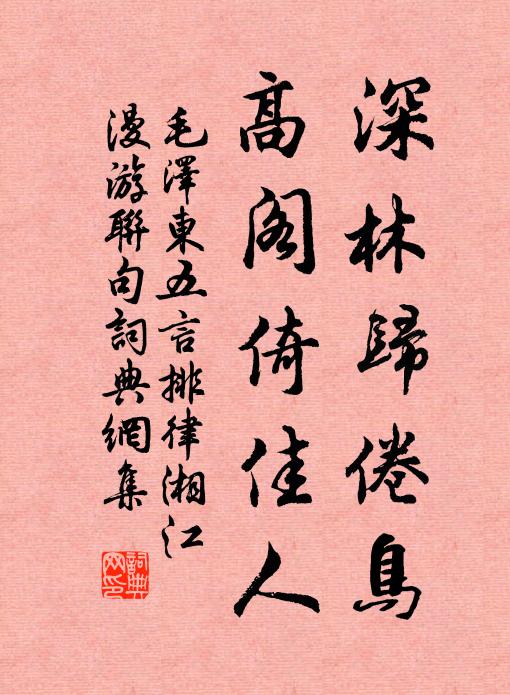 深林歸倦鳥
高閣倚佳人
毛澤東五言排律湘江
漫游聯句詞典網集
詞典网印